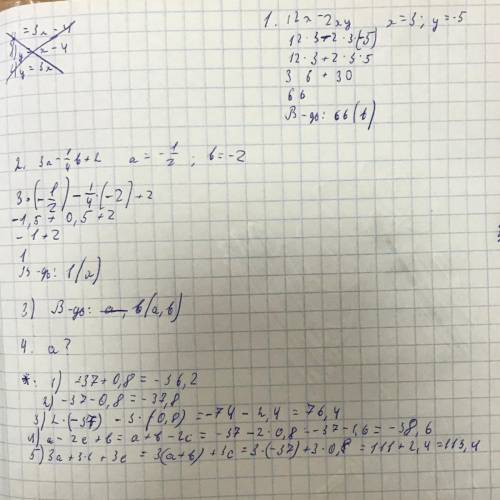 y = 3x - 4
1) y = x - 4
4) y = 3x
1. 12x - 2xy x = 3; y = -5
12·3 - 2·3·(-5)
12·3 + 2·3·5
36 + 30
66
В-дь: 66 (b)
2. 3a - 1/4 b + 2 a = -1/2; b = -2
3·(-1/2) - 1/4·(-2) + 2
-1,5 + 0,5 + 2
-1 + 2
1
В-дь: 1 (a)
3) В-дь: a, b (a, b)
4. a?
*. 1) -37 + 0,8 = -36,2
2) -37 - 0,8 = -37,8
3) 2·(-37) - 3·(0,8) = -74 - 2,4 = 76,4
4) a - 2c + b = a + b - 2c = -37 - 2·0,8 = -37 - 1,6 = -38,6
5) 3a + 3b + 3c = 3(a+b) + 3c = 3·(-37) + 3·0,8 = 111 + 2,4 = 113,4